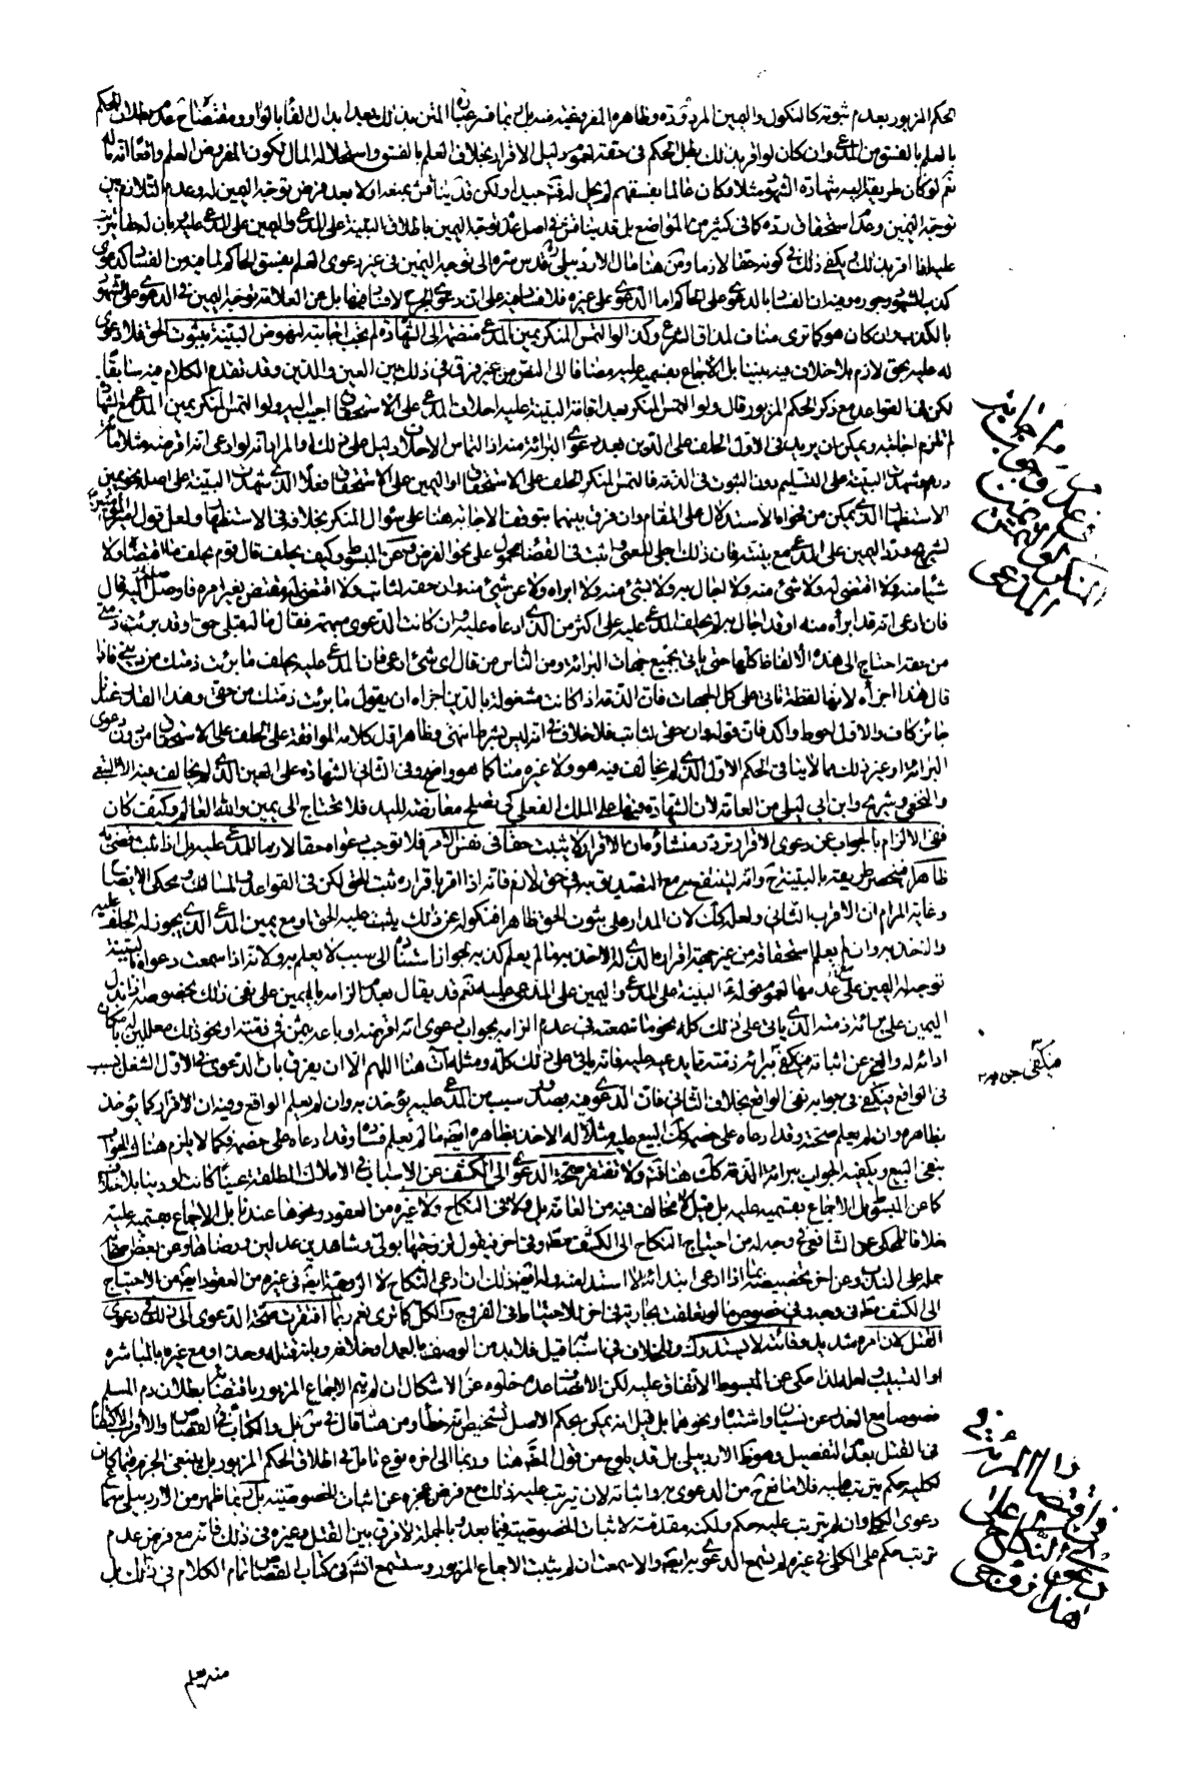 الحكم المزبور بعدم ثبوته كالنكول واليمين المردودة وظاهره المفروغية منه بل ربما فسر عبارة المتن بذلك بعد ابدال الفاء بالواو ومقتضاه
بالعلم بالفسق من المدعى وان كان لو اقر بذلك بطل الحكم فى حقه لعموم دليل الاقرار بخلاف العلم بالفسق واستحلاله المال لكون المفروض العلم واقعا انه ماله
نعم لو كان طريقه اليه شهادة الشهود مثلا وكان عالما بفسقهم لم يحل له قد
توجه اليمين وعدم استحقاق رده كما فى كثير من المواضع بل قد يناقش فى اصل عدم توجه اليمين باطلاق البينة على المدعى واليمين على المدعى عليه
عليه لو اقر بذلك بل يكفى ذلك فى كونه حقا لازما ومن هنا مال الاردبيلى قدس سره الى توجه اليمين فى غير دعوى العلم بفسق الحاكم لما فيه من الفساد كدعوى
كذب الشهود وجوره وفيه ان الفساد بالدعوى على الحاكم اما الدعوى على غيره فلا فساد فيه على ان دعوى الجرح لا فساد فيها بل من العلامة توجه اليمين فى الدعوى على الشهود
بالكذب وان كان هو كما ترى مناف لمذاق الشرع وكذا لو التمس المنكر يمين المدعى منضمة الى الشهادة لم يجب اجابته لنهوض البينة بثبوت الحق فلا دعوى
له عليه بحق لازم بلا خلاف فيه بيننا بل الاجماع بقسميه عليه مضافا الى النص من غير فرق فى ذلك بين العين والدين وقد تقدم الكلام فيه سابقا
لكن فى القواعد مع ذكر الحكم المزبور قال ولو التمس المنكر بعد اقامة البينة عليه احلاف المدعى على الاستحقاق اجيب اليه ولو التمس المنكر يمين المدعى مع الشهادة
لم تلزم اجابته ويمكن ان يريد فى الاول الحلف على الدين بعد دعوى البرائة منه اذ التماس الاحلاف دليل على ذلك او المراد انه لو ادعى انه اقرضه مثلا
درهم وشهدت البينة على التسليم دون الثبوت فى الذمة فالتمس المنكر الحلف على الاستحقاق
الاستظهار الذى يمكن من نحواه الاستدلال على المقام وان فرق بينهما بتوقف الاجابة هنا على سؤال المنكر بخلافه فى الاستظهار ولعل قول
لشريح ورد اليمين على المدعى مع بينته فان ذلك اجلى للعمى واثبت فى القضاء محمول على نحو الفرض وعن المبسوط وكيف يحلف قال قوم يحلف ما اقتضاه ولا
شيئا منه ولا اقتضى له ولا شئ منه ولا احال به ولا بشئ منه ولا ابراه ولا عن شئ منه وان حقه لثابت ولا اقتضى له مقتض بغير امره فاوصل اليه قال
فان ادعى انه قد ابرأه منه او قد احال به لم يحلف المدعى عليه على اكثر من الذى ادعاه عليه وان كانت الدعوى مبهمة فقال ما له قبلى حق او قد برئت ذمتى
من حقه احتاج الى هذه الالفاظ كلها حتى ياتى بجميع جهات البرائة ومن الناس من قال اى شئ ادعى فان المدعى عليه يحلف ما برئت ذمتك من دينى فاذا
قال هذا اجزأه لانها لفظة تاتى على كل الجهات فان الذمة اذا كانت مشغولة بالدين اجزاه ان يقول ما برئت ذمتك من حقى وهذا القدر عندنا
جائز كاف والاول احوط واكد فاما قوله وان حقى لثابت فلا خلاف فى انه ليس بشرط انتهى وظاهر اول كلامه الموافقة على الحلف على الاستحقاق من دون دعوى
البرائة او غير ذلك مما لا ينافى الحكم الاول الذى لم يخالف فيه هو ولا غيره منا كما هو واضح وفى الثانى الشهادة على العين الذى لم يخالف فيه الا الشعبى
والنخعى وشريح وابن ابى ليلى من العامة لان الشهادة فيها على الملك الفعلى كى تصلح معارضة لليد فلا تحتاج الى يمين والله العالم وكيف كان
ففى الالزام بالجواب عن دعوى الاقرار تردد منشاؤه ان الاقرار لا يثبت حقا فى نفس الامر فلا توجب دعواه حقا لازما للمدعى عليه بل اذا ثبت قضى به
ظاهرا فينحصر طريقه بالبينة ومن انه ينتفع به مع التصديق به فى حق لازم فانه اذا اقر باقراره ثبت الحق لكن فى القواعد والمسالك ومحكى الايضاح
وغاية المرام ان الاقرب الثانى ولعله كذلك لان المدار على ثبوت الحق ظاهرا فنكوله عن ذلك يثبت عليه الحق او مع يمين المدعى الذى يجوز له الحلف عليه
والاخذ به وان لم يعلم استحقاقه من غير جهة اقراره الذى له الاخذ به ما لم يعلم كذبه لجواز استناده الى سبب لا يعلم به ولانه اذا سمعت دعواه بالبينة
توجه له اليمين على عدمها لعموم قوله البينة على المدعى واليمين على المدعى عليه نعم قد يقال بعدم الزامه باليمين على نفى ذلك بخصوصه اذا بذل
اليمين على برائة ذمته الذى ياتى على ذلك كله نحو ما سمعته فى عدم الزامه بجواب دعوى انه اقرضه او باعه بثمن فى ذمته او نحو ذلك
ادائه له والعجز عن اثباته فيكفى برائة ذمته مما يدعيه عليه فانه ياتى على ذلك كله ومثله آت هنا اللهم الا ان يفرق بان الدعوى فى الاول الشغل بسبب
فى الواقع فيكفى فى جوابه نفى الواقع بخلاف الثانى فان الدعوى فيه بصدور سبب من المدعى عليه يؤخذ به وان لم يعلم الواقع وفيه ان الاقرار كما يؤخذ
بظاهره وان لم يعلم صحته وقد ادعاه على خصمه كذلك البيع عليه مثلا له الاخذ بظاهره ايضا ما لم يعلم فساده وقد ادعاه على خصمه فكما لا يلزم هناك الجواب
بنفى البيع ويكفيه الجواب ببرائة الذمة كذلك هنا فتامل ولا تفتقر صحة الدعوى الى الكشف عن الاسباب فى الاملاك المطلقة عينا كانت او دينا بلا خلاف
كما عن المبسوط بل الاجماع بقسميه عليه بل قيل لا مخالف فيه من العامة بل ولا فى النكاح ولا غيره من العقود ونحوها عندنا بل الاجماع بقسميه عليه
خلافا للمحكى عن الشافعى فى وجه له من احتياج النكاح الى الكشف مطلقا وفى اخر فيقول تزوجتها بولى وشاهدين عدلين ورضاها وعن بعض اصحابه
حمله على الندب وعن اخر تخصيصه بما اذا ادعى ابتدائه لا استدامته وله ايضا ذلك ان ادعى النكاح لا الزوجية ايضا فى غيره من العقود ايضا من الاحتياج
الى الكشف مطلقا فى وجه وفى خصوص ما لو تعلقت بجارية فى اخر للاحتياط فى الفروج والكل كما ترى نعم ربما افتقرت صحة الدعوى الى ذلك فى دعوى
القتل لان امره شديد وفائته لا يستدرك وللخلاف فى اسبابه قيل فلا بد من الوصف بالعمد او خلافه وبانه قتله وحده او مع غيره بالمباشرة
او التسبيب ولعله لذا حكى عن المبسوط الاتفاق عليه لكن الانصاف عدم خلوه عن الاشكال ان لم يتم الاجماع المزبور باقتضائه بطلان دم المسلم
خصوصا مع العذر عن نسيان واشتباه ونحوهما بل قيل انه يمكن بحكم الاصل تشخيصه خطأ ومن هنا قال فى
فى القتل بعدم التفصيل وهو خيرة الاردبيلى بل قد يلوح من قول المصنف هنا وربما الى اخره نوع تامل فى اطلاق الحكم المزبور بل ينبغى الجزم فيما كان
لكليه حكم يترتب عليه فلا مانع من الدعوى به واثباته لان يترتب عليه ذلك مع فرض عجزه عن اثبات الخصوصية بل ربما ظهر من الاردبيلى سماع
دعوى الكلى وان لم يترتب عليه حكم ولكنه مقدمة لاثبات الخصوصية فيما بعد وبالجملة لا فرق بين القتل وغيره فى ذلك فانه مع فرض عدم
ترتب حكم على الكلى فى غيره لم تسمع الدعوى به ايضا والا سمعت ان لم يثبت الاجماع المزبور وستسمع انشاء فى كتاب القصاص تمام الكلام فى ذلك بل
ما جابة
عدم وجوب
المنكر لو التمس
يمين
المدعى
فيكفى
فى اقتصار المرئة
على
دعوى النكاح
هذا زوجى
منه يعلم